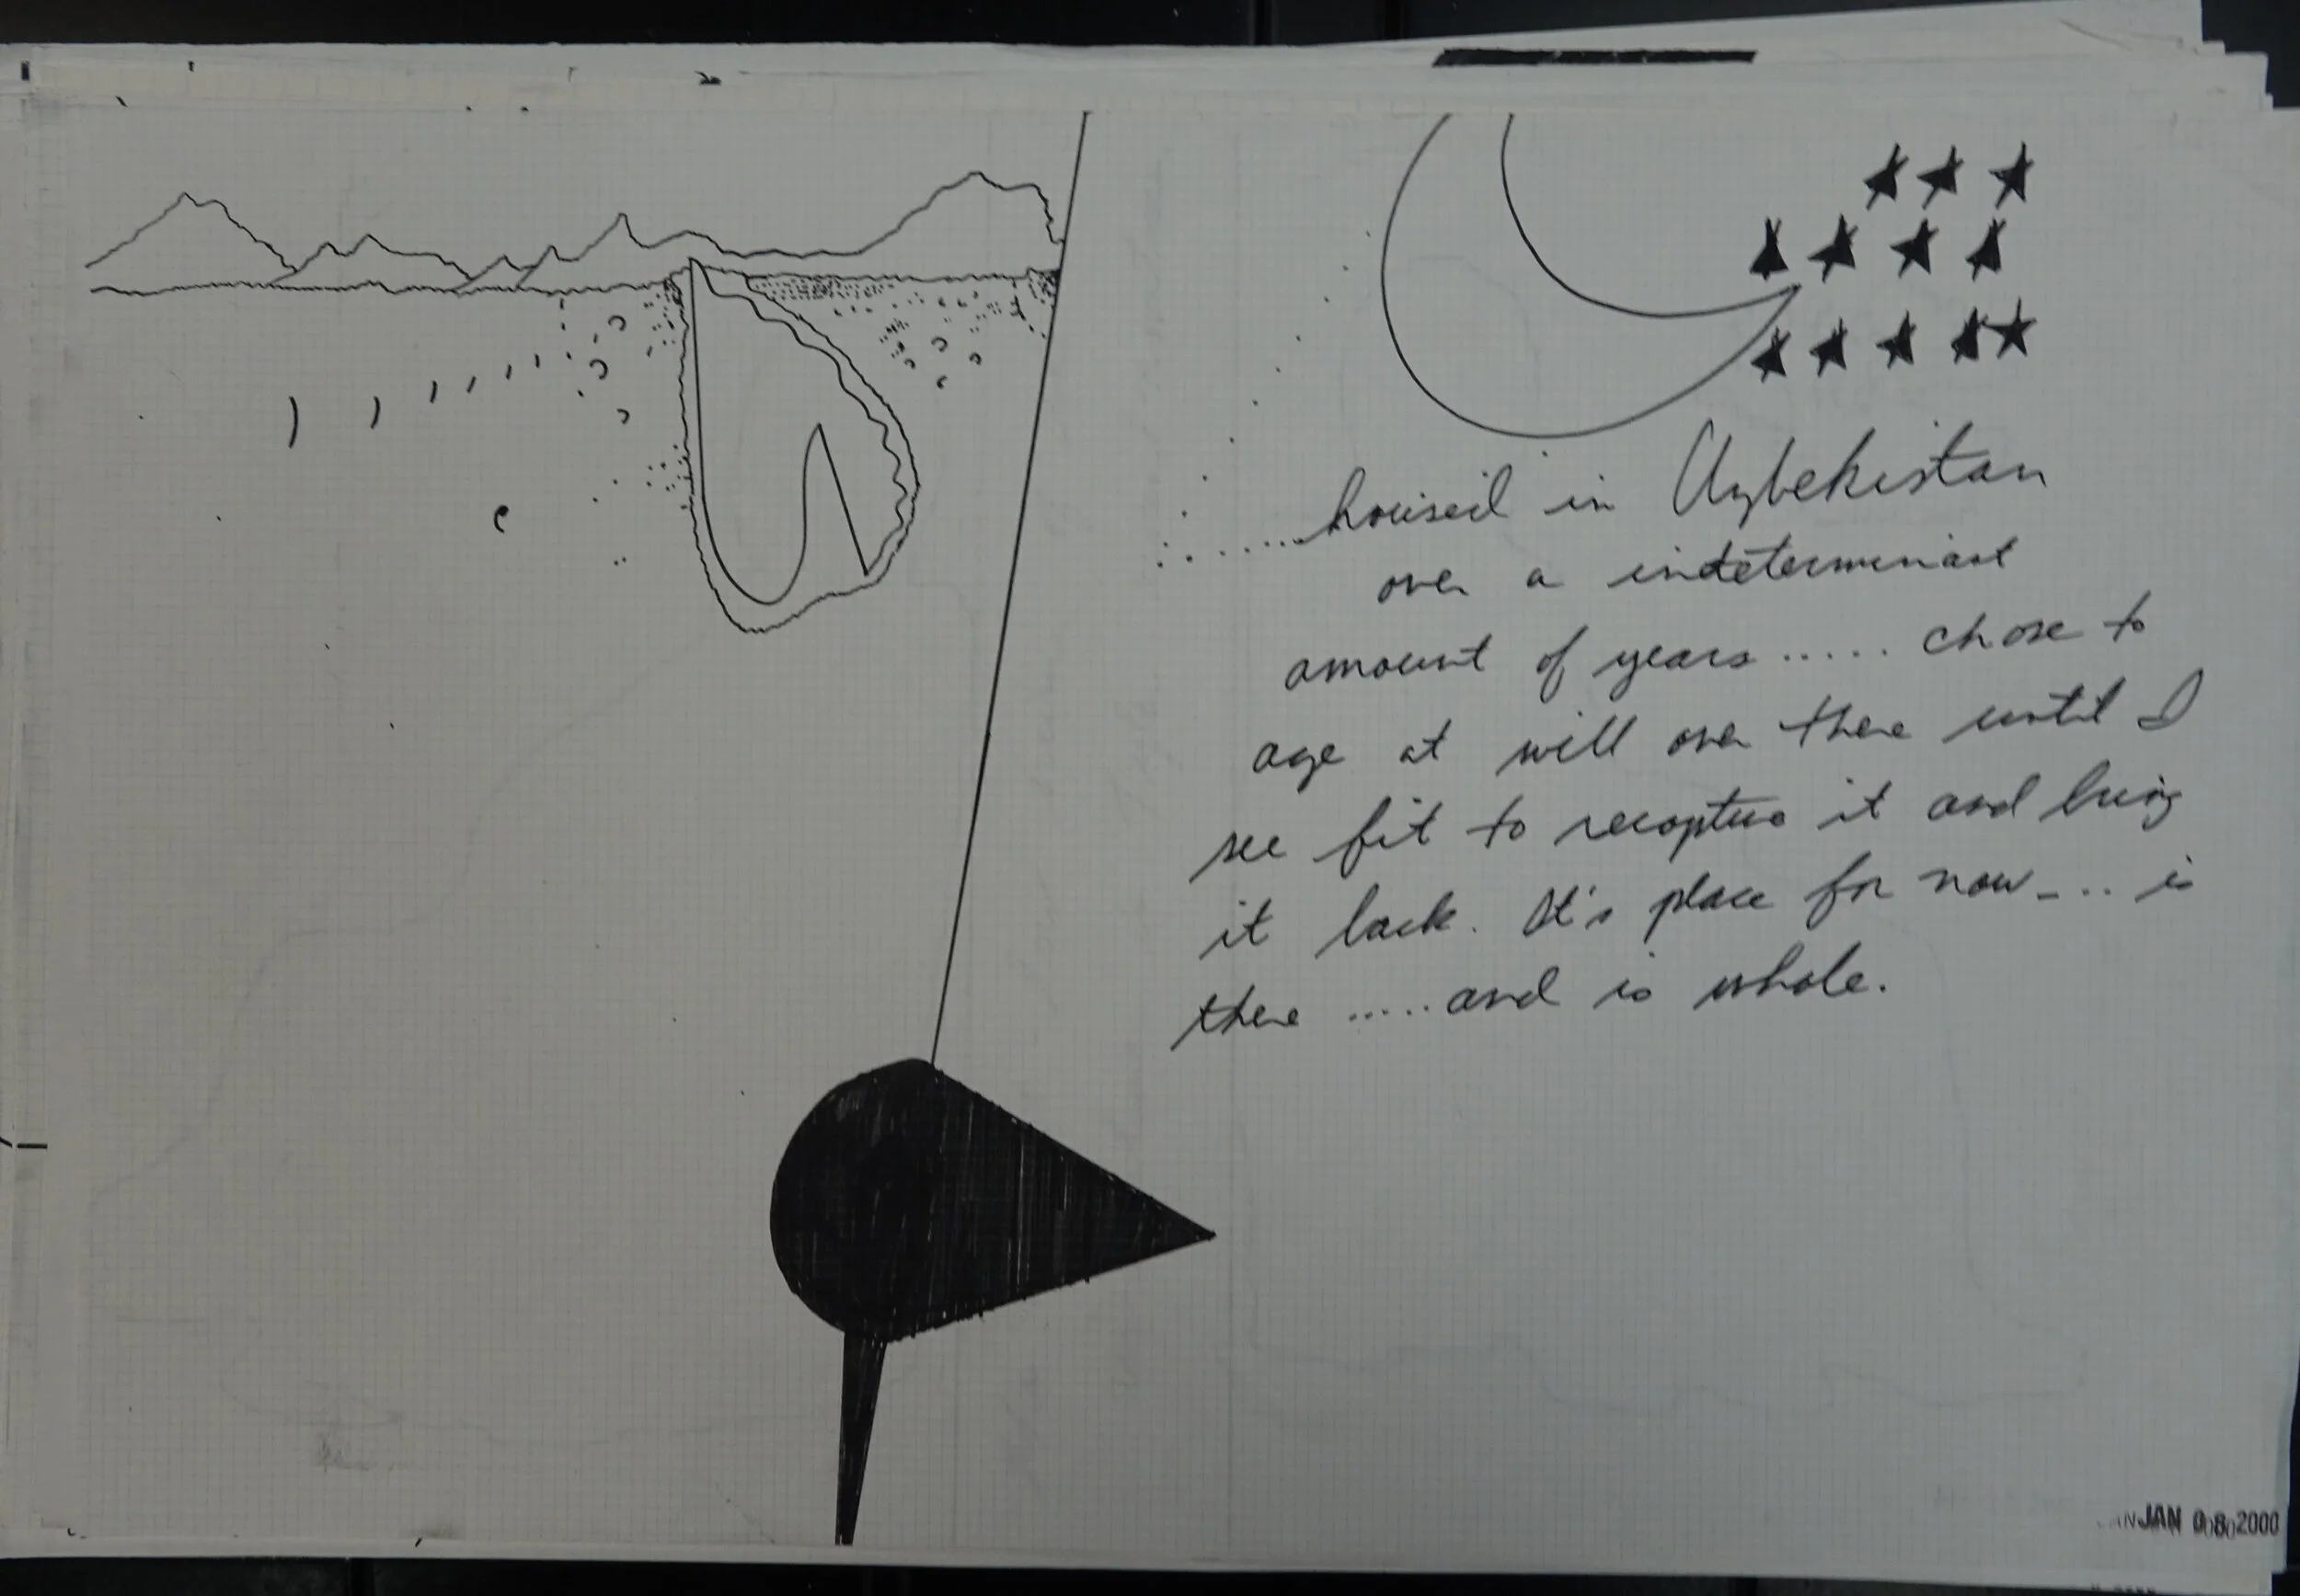 ......housed in Uzbekistan
over a indeterminant
amount of years ..... chose to
age at will over there until I
see fit to recapture it and bring
it back. It's place for now _ .. is
there ..... and is whole.
JAN 08 2000